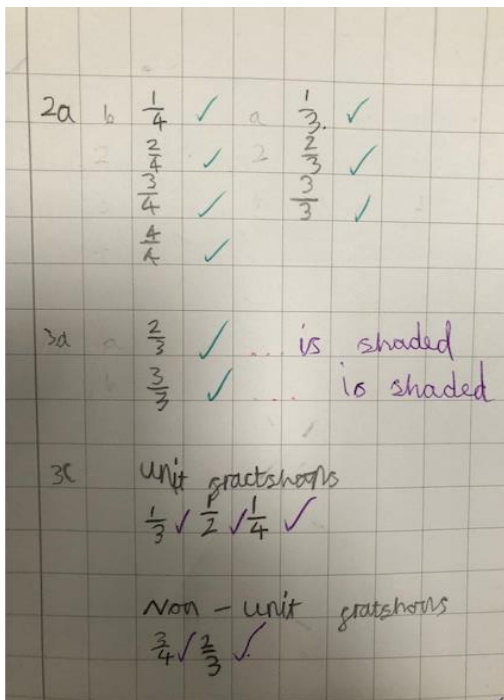 2a b 1/4 ✓ a 1/3. ✓
2 2/4 ✓ 2 2/3 ✓
3/4 ✓ 3/3 ✓
4/4 ✓
3a a 2/3 ✓ ... is shaded
b 3/3 ✓ .... is shaded
3c unit fractshoons
1/3 ✓ 1/2 ✓ 1/4 ✓
Non - unit fratshons
3/4 ✓ 2/3 ✓